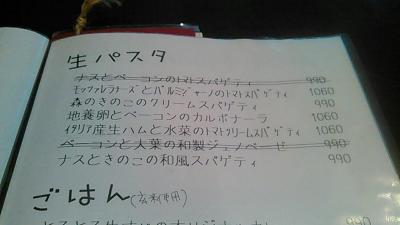 生パスタ
ナスとベーコンのトマトスパゲティ 990
モッツァレラチーズとパルミジャーノのトマトスパゲティ 1060
森のきのこのクリームスパゲティ 990
地養卵とベーコンのカルボナーラ 1060
イタリア産生ハムと水菜のトマトクリームスパゲティ 1060
ベーコンと大葉の和製ジェノベーゼ 990
ナスときのこの和風スパゲティ 990
ごはん(玄米使用)